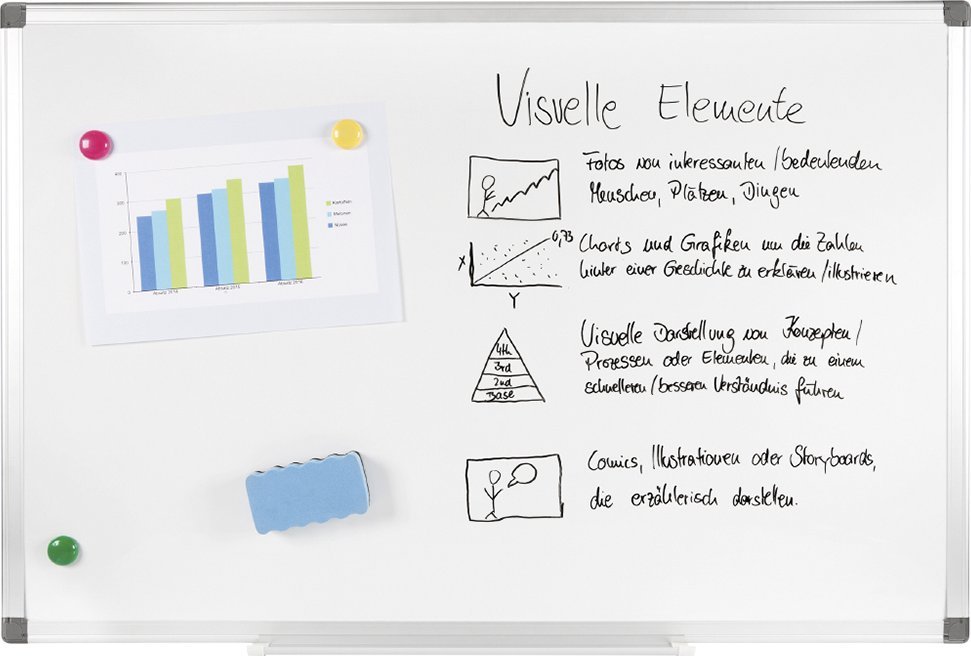 Visuelle Elemente
Fotos von interessanten/bedeutenden
Menschen, Plätzen, Dingen
0,73
X
Y
Charts und Grafiken um die Zahlen
hinter einer Geschichte zu erklären/illustrieren
4th
3rd
2nd
Base
Visuelle Darstellung von Konzepten/
Prozessen oder Elementen, die zu einem
schnelleren/besseren Verständnis führen
Comics, Illustrationen oder Storyboards,
die erzählerisch darstellen.
400
300
200
100
0
Kartoffeln
Melonen
Nüsse
Absatz 2014 Absatz 2015 Absatz 2016